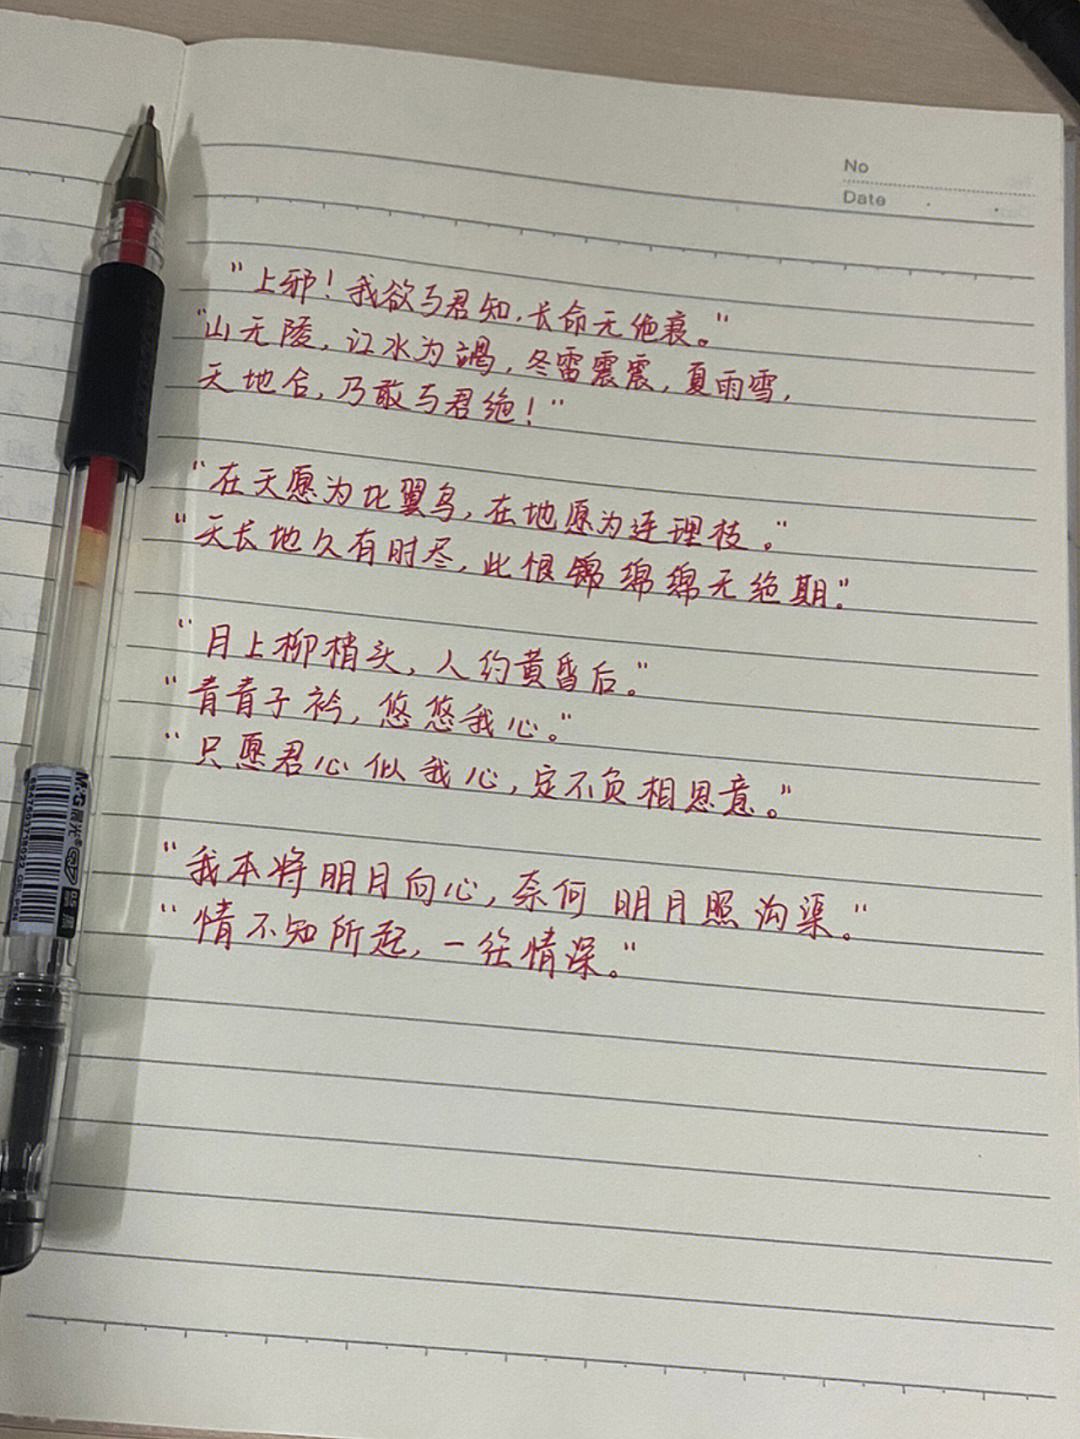 No
Date
"上邪！我欲与君知，长命无绝衰。"
"山无陵，江水为竭，冬雷震震，夏雨雪，
天地合，乃敢与君绝！"
"在天愿为比翼鸟，在地愿为连理枝。"
"天长地久有时尽，此恨锦绵绵无绝期."
"月上柳梢头，人约黄昏后。"
"青青子衿，悠悠我心。"
"只愿君心似我心，定不负相思意。"
"我本将明月向心，奈何明月照沟渠。"
"情不知所起，一往情深。"
M&G晨光®
GEL PEN